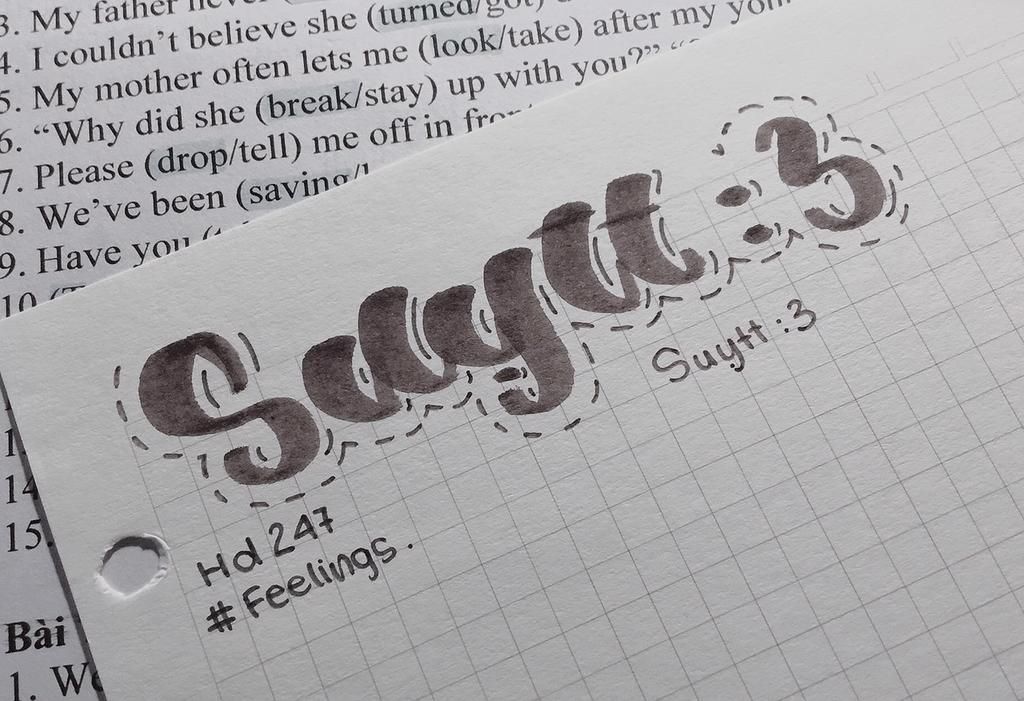 3. My father never
4. I couldn't believe she (turned/got)
5. My mother often lets me (look/take) after my
6. “Why did she (break/stay) up with you?” “
7. Please (drop/tell) me off in
8. We've been (saving/
9. Have you (
10
Suytt :3
Suytt :3
Hd 247
#Feelings.
14
15.
Bài
1.